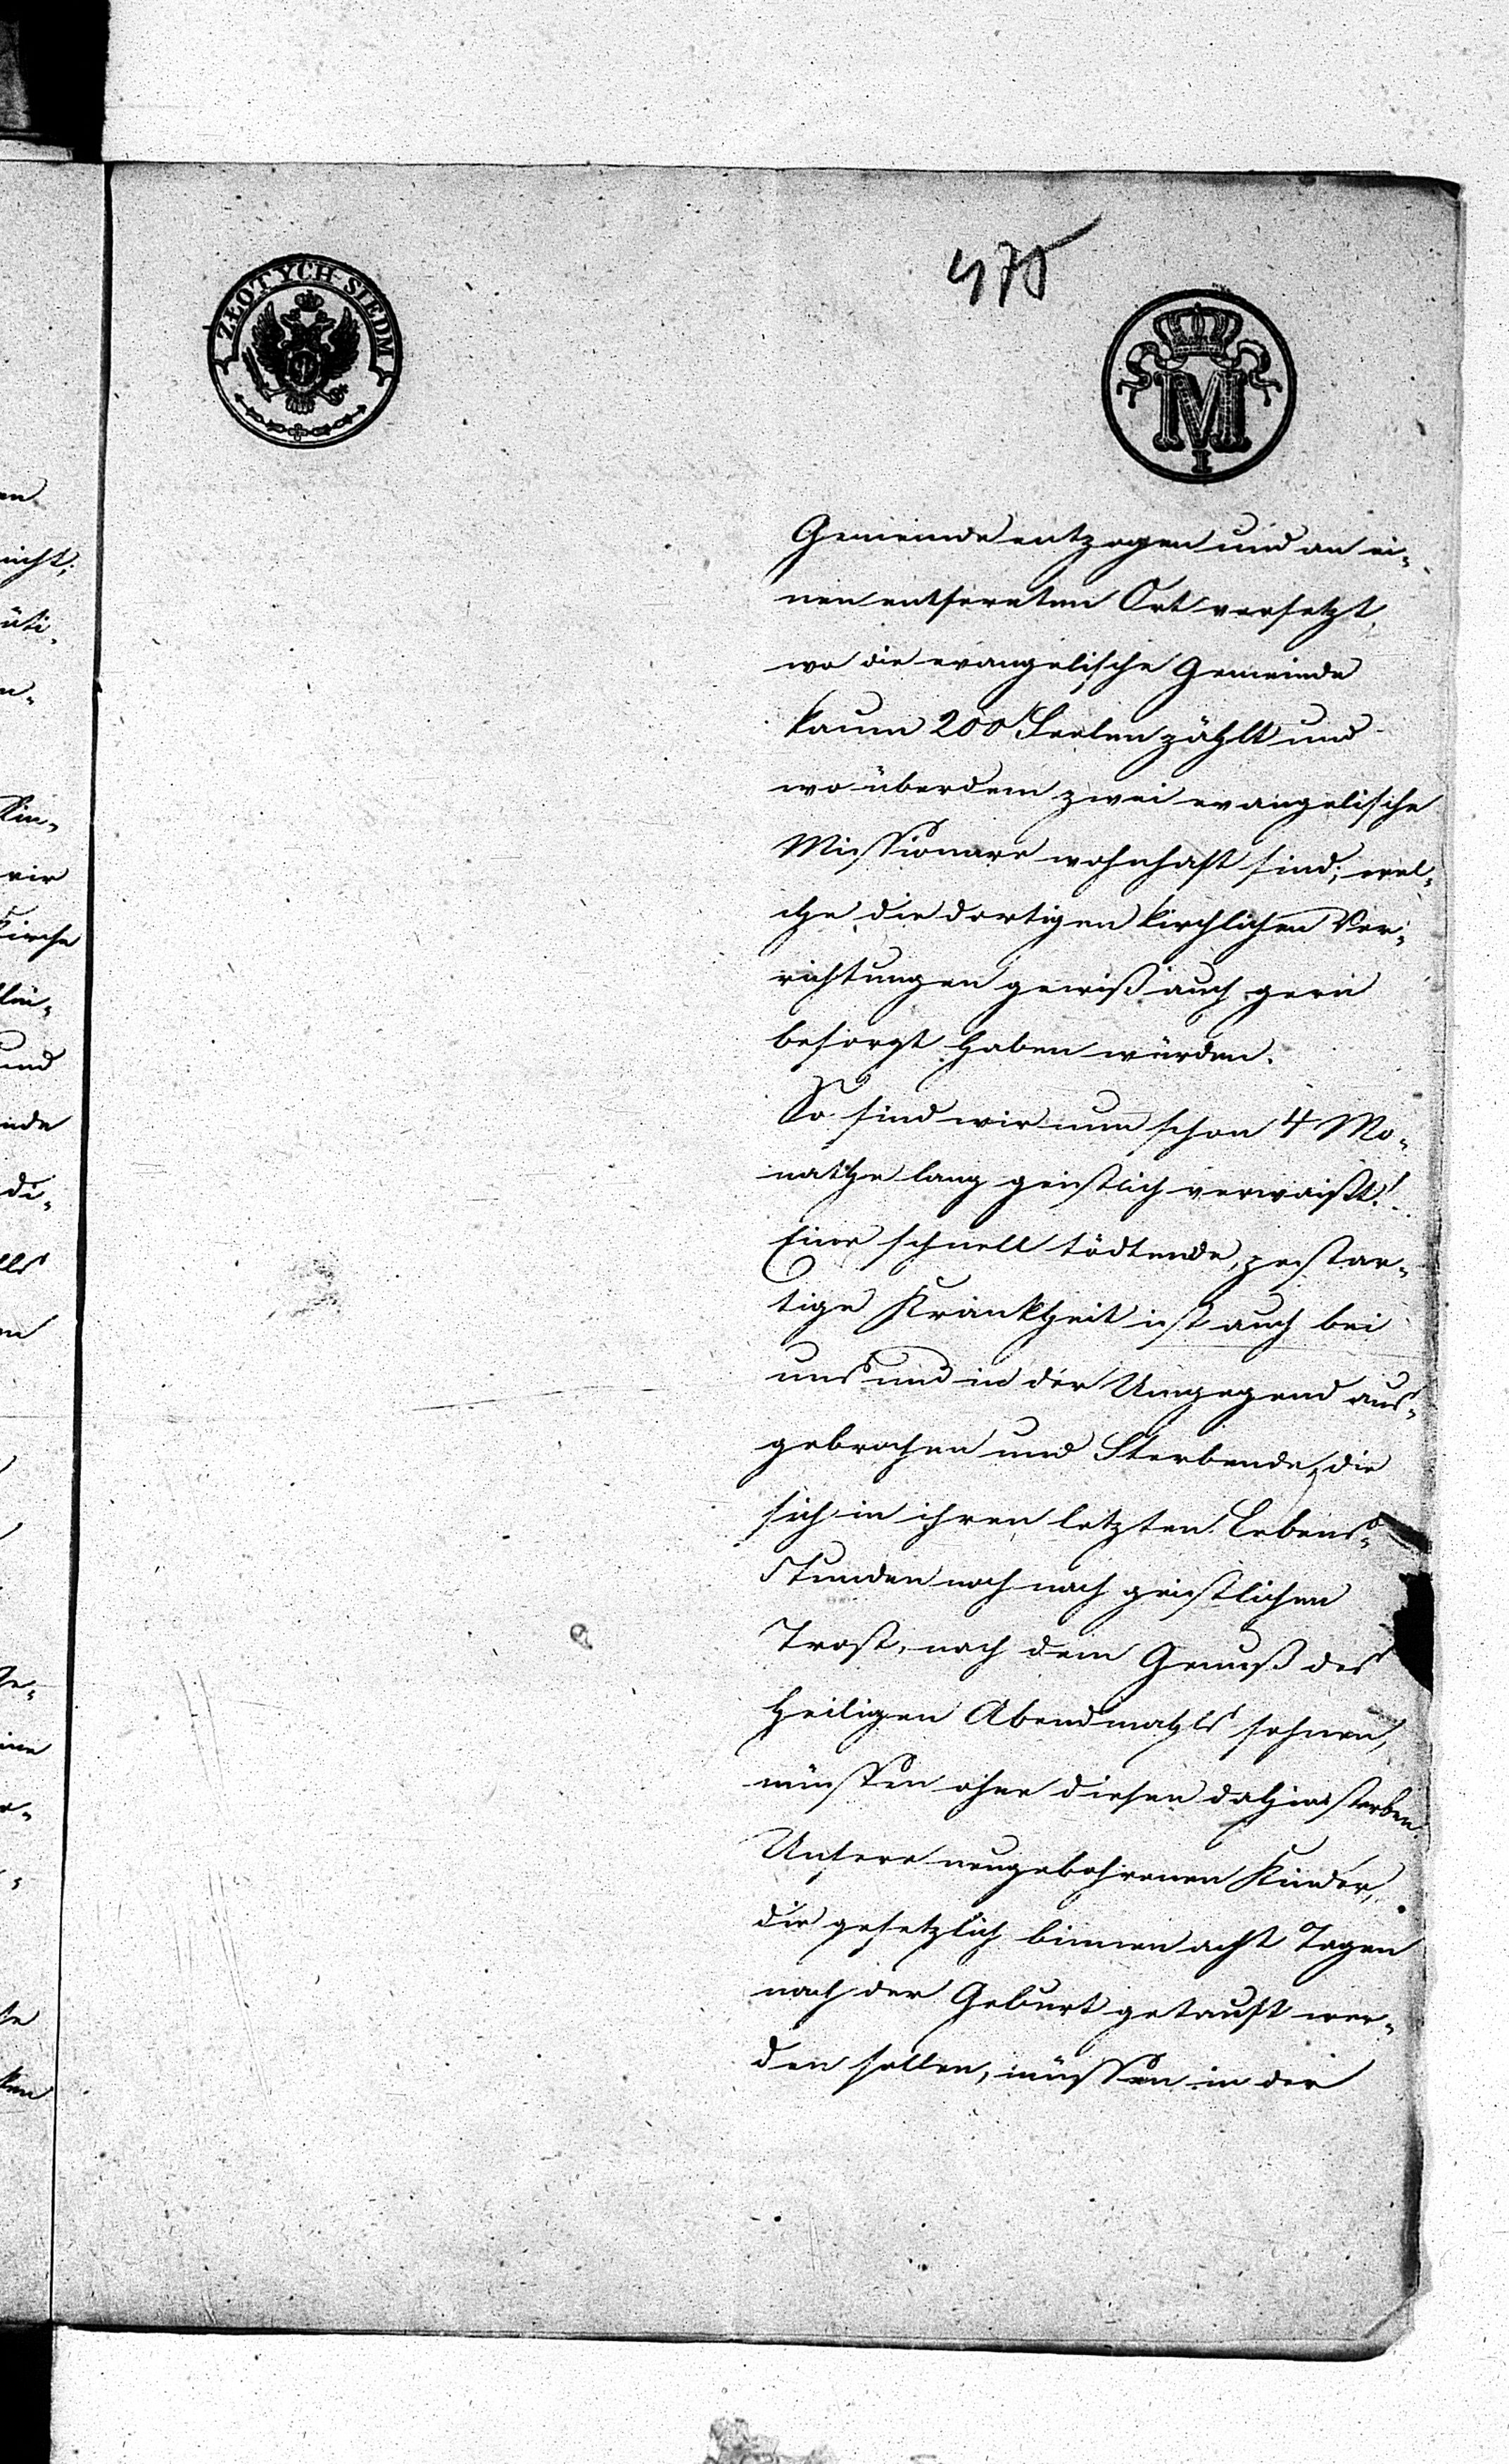 ZŁOTYCH SIEDM
475
M
I
Gemeinde entzogen und an ei-
nen entfernten Ort versetzt,
wo die evangelische Gemeinde
kaum 200 Seelen zählt und
wo überdem zwei evangelische
Missionare wohnhaft sind; wel-
che die dortigen kirchlichen Ver-
richtungen gewiß auch gern
besorgt haben würden.
So sind wir nun schon 4 Mo-
nathe lang geistlich verwaißt!
Eine schnell tödtende, pestar-
tige Krankheit ist auch bei
uns und in der Umgegend aus-
gebrochen und Sterbende, die
sich in ihren letzten Lebens-
Stunden noch nach geistlichen
Trost, nach dem Genuß des
heiligen Abendmahls sehnen,
müssen ohne diesen dahinsterben.
Unsere neugebohrenen Kinder,
die gesetzlich binnen acht Tagen
nach der Geburt getauft wer-
den sollen, müssen in der
en
nicht;
üti-
n-
Kin-
wir
Kirche
und
ende
di-
els
en
Ge-
eine
ken